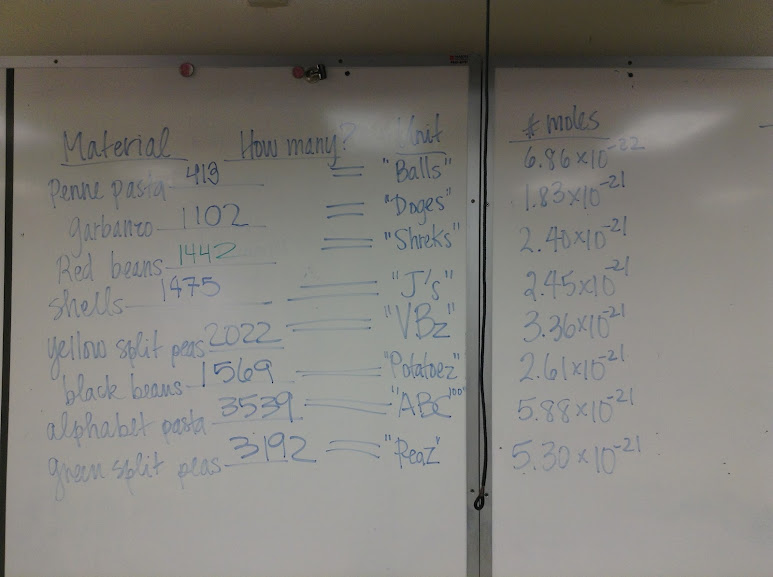 Material How many? Unit # moles
Penne pasta 413 = "Balls" 6.86×10⁻²²
garbanzo 1102 = "Doges" 1.83×10⁻²¹
Red beans 1442 = "Shreks" 2.40×10⁻²¹
shells 1475 = "J's" 2.45×10⁻²¹
yellow split peas 2022 = "VBz" 3.36×10⁻²¹
black beans 1569 = "Potatoez" 2.61×10⁻²¹
alphabet pasta 3539 = "ABC¹⁰⁰" 5.88×10⁻²¹
green split peas 3192 = "Peaz" 5.30×10⁻²¹